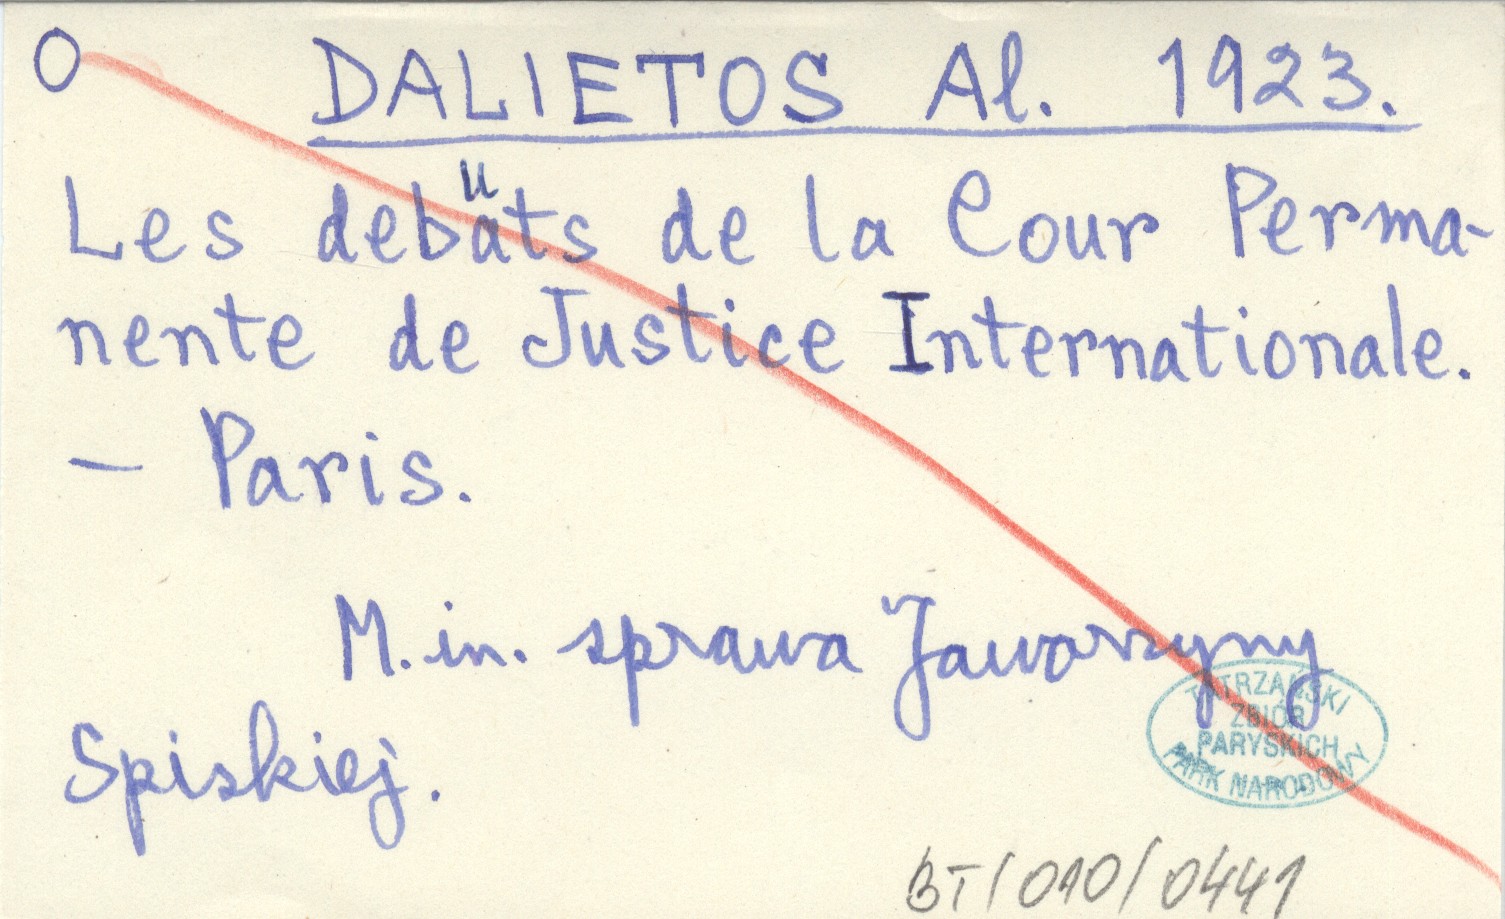 O DALIETOS Al. 1923.
Les debüts de la Cour Perma-
nente de Justice Internationale.
– Paris.
M. in. sprawa Jaworzyny
Spiskiej.
TATRZAŃSKI
ZBIÓR
PARYSKICH
PARK NARODOWY
BT/010/0441